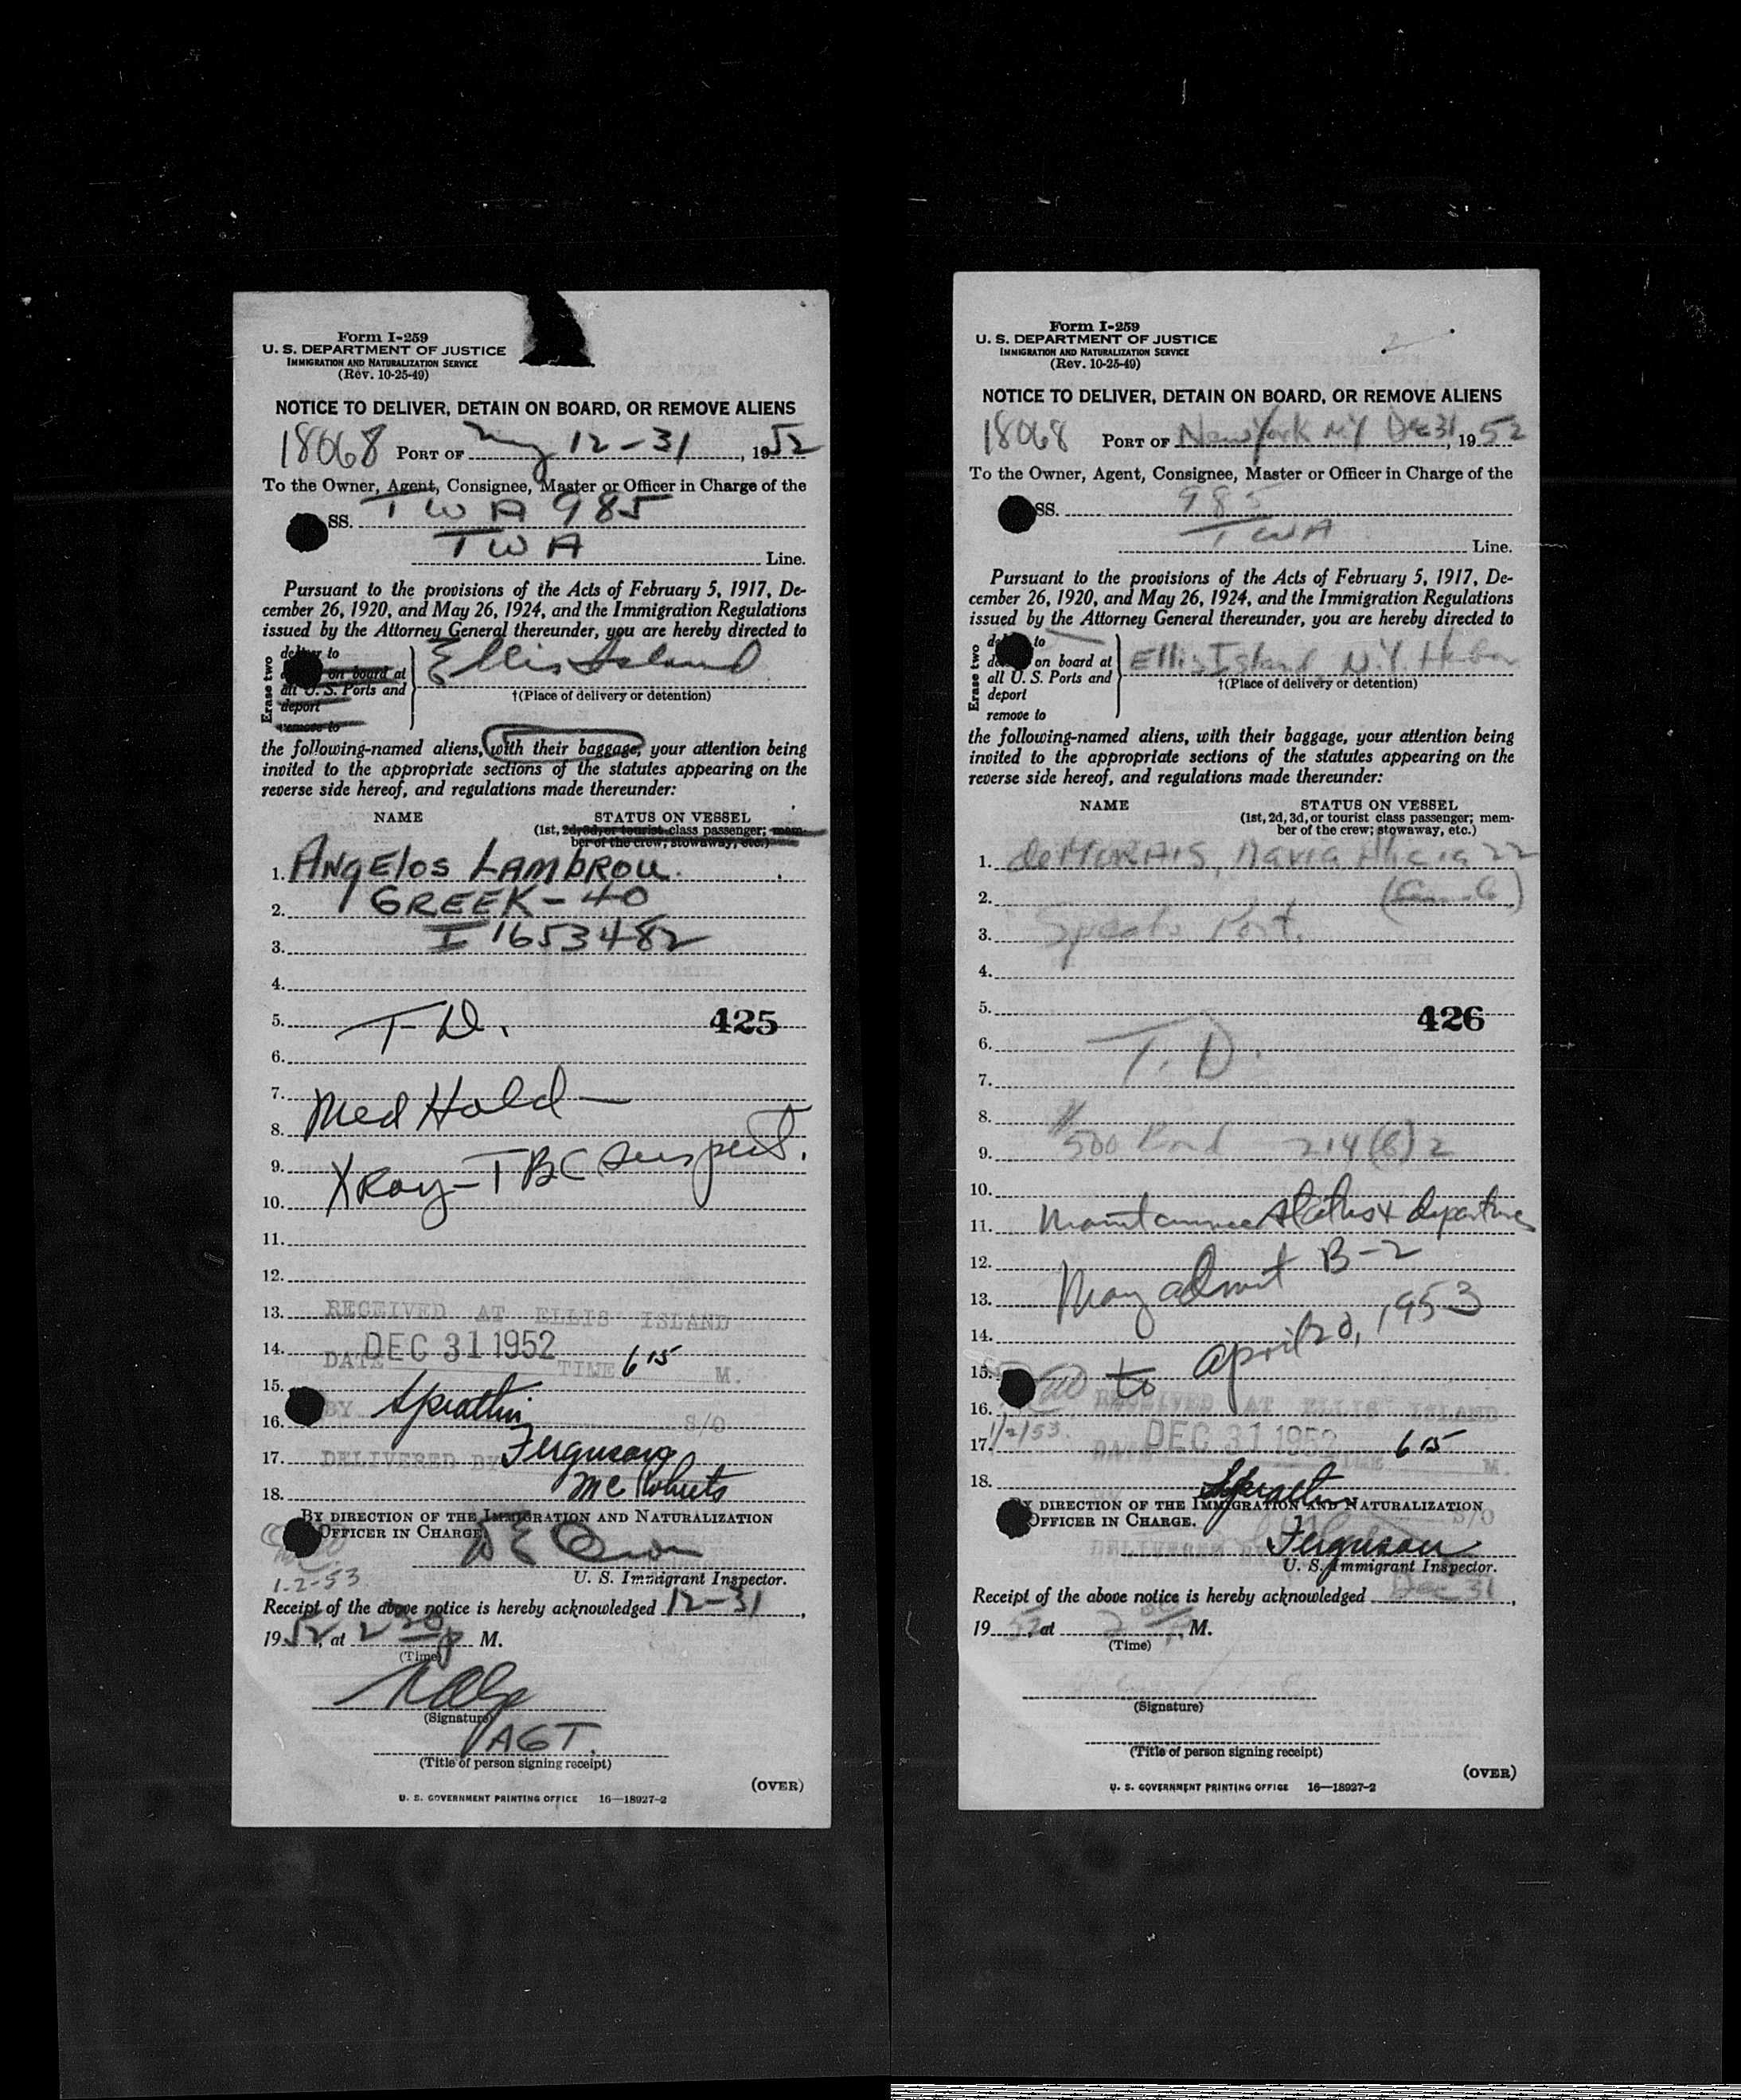 Form I-259
U. S. DEPARTMENT OF JUSTICE
IMMIGRATION AND NATURALIZATION SERVICE
(Rev. 10-25-49)
NOTICE TO DELIVER, DETAIN ON BOARD, OR REMOVE ALIENS
18068 PORT OF NY 12-31, 1952
To the Owner, Agent, Consignee, Master or Officer in Charge of the
SS. TWA 985
TWA Line.
Pursuant to the provisions of the Acts of February 5, 1917, De-
cember 26, 1920, and May 26, 1924, and the Immigration Regulations
issued by the Attorney General thereunder, you are hereby directed to
Erase two
deliver to
on board at
all U. S. Ports and
deport
remove to
Ellis Island
†(Place of delivery or detention)
the following-named aliens, with their baggage, your attention being
invited to the appropriate sections of the statutes appearing on the
reverse side hereof, and regulations made thereunder:
NAME STATUS ON VESSEL
(1st, 2d, 3d, or tourist class passenger; mem-
ber of the crew; stowaway, etc.)
1. ANGELOS LAMBROU.
2. GREEK - 40
3. I 1653482
4.
5. T-D. 425
6.
7. Med Hold -
8.
9. XRay - TBC suspect.
10.
11.
12.
13. RECEIVED AT ELLIS ISLAND
14. DATE DEC 31 1952 TIME 6 15 M.
15.
16. BY S/O
17. DELIVERED BY Ferguson
18.
BY DIRECTION OF THE IMMIGRATION AND NATURALIZATION
OFFICER IN CHARGE.
1-2-53
U. S. Immigrant Inspector.
Receipt of the above notice is hereby acknowledged 12-31,
1952, at 2 30 P M.
(Time)
(Signature)
AGT.
(Title of person signing receipt)
(OVER)
U. S. GOVERNMENT PRINTING OFFICE 16—18927-2
Form I-259
U. S. DEPARTMENT OF JUSTICE
IMMIGRATION AND NATURALIZATION SERVICE
(Rev. 10-25-49)
NOTICE TO DELIVER, DETAIN ON BOARD, OR REMOVE ALIENS
18068 PORT OF New York N.Y Dec 31, 1952
To the Owner, Agent, Consignee, Master or Officer in Charge of the
SS. 985
TWA Line.
Pursuant to the provisions of the Acts of February 5, 1917, De-
cember 26, 1920, and May 26, 1924, and the Immigration Regulations
issued by the Attorney General thereunder, you are hereby directed to
Erase two
to
on board at
all U. S. Ports and
deport
remove to
Ellis Island N.Y. Harbor
†(Place of delivery or detention)
the following-named aliens, with their baggage, your attention being
invited to the appropriate sections of the statutes appearing on the
reverse side hereof, and regulations made thereunder:
NAME STATUS ON VESSEL
(1st, 2d, 3d, or tourist class passenger; mem-
ber of the crew; stowaway, etc.)
1. deMORAIS, Maria Alicia 22
2.
3. Speaks Port.
4.
5. 426
6. T. D.
7.
8.
9. 500 Bond 214(B)2
10.
11. Maintenance status & departure
12. May admit B-2
13.
14. April 20, 1953
15. to
16. RECEIVED AT ELLIS ISLAND
1/2/53
17. DATE DEC 31 1952 TIME 6 15 M.
18.
BY DIRECTION OF THE IMMIGRATION AND NATURALIZATION
OFFICER IN CHARGE. S/O
DELIVERED Ferguson
U. S. Immigrant Inspector.
Receipt of the above notice is hereby acknowledged Dec 31,
1952, at 2 M.
(Time)
(Signature)
(Title of person signing receipt)
(OVER)
U. S. GOVERNMENT PRINTING OFFICE 16—18927-2